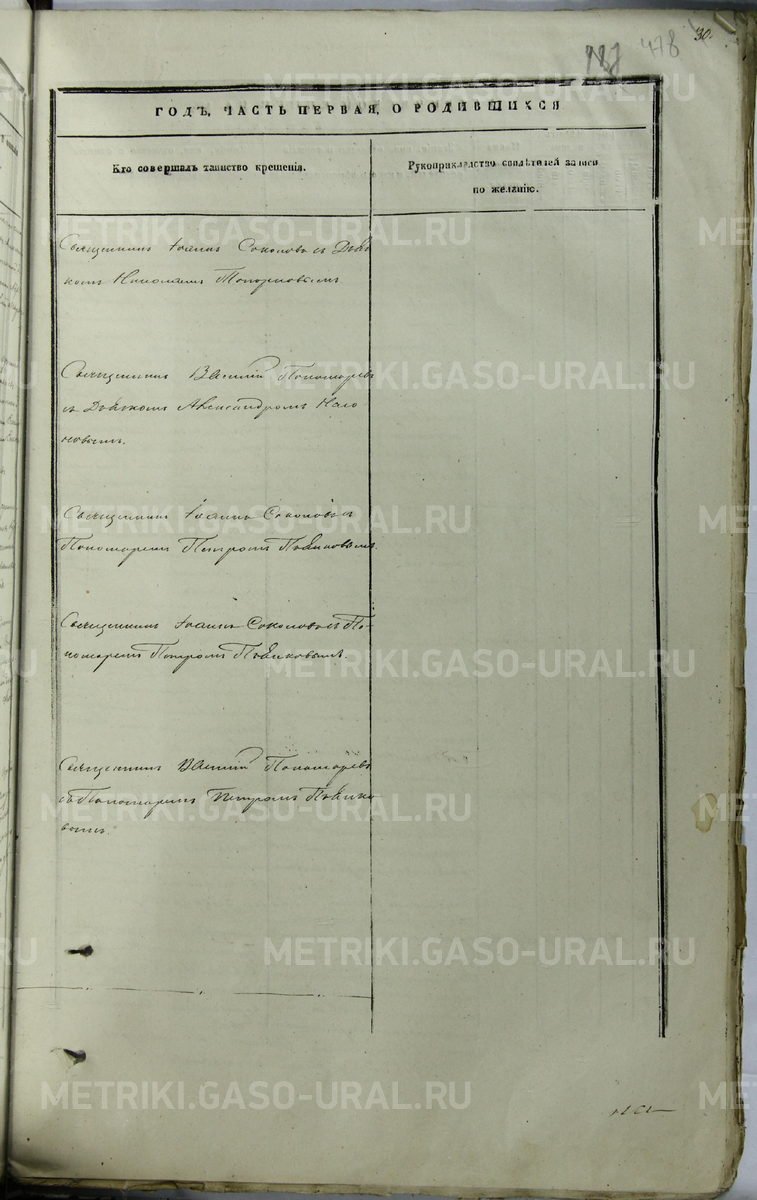 30.
478
ГОДЪ, ЧАСТЬ ПЕРВАЯ, О РОДИВШИХСЯ
Кто совершалъ таинство крещенія.
Рукоприкладство свидѣтелей записи
по желанію.
Священникъ Іоаннъ Соколовъ съ Дьяч
комъ Николаемъ Топорковымъ
Священникъ Василій Пономаревъ
съ Дьячкомъ Александромъ Насо
новымъ.
Священникъ Іоаннъ Соколовъ съ
Пономаремъ Петромъ
Священникъ Іоаннъ Соколовъ съ По-
номаремъ Петромъ
Священникъ Василій Пономаревъ
съ Пономаремъ Петромъ
вымъ.
METRIKI.GASO-URAL.RU